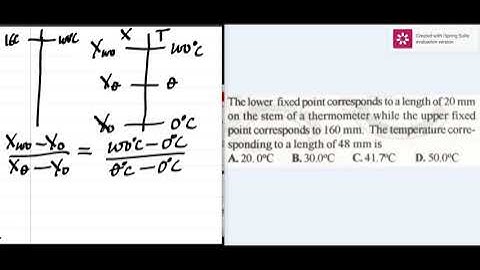 160 100°C
X T
X₁₀₀ 100°C
Xθ θ
X₀ 0°C
X₁₀₀ – X₀ / Xθ – X₀ = 100°C – 0°C / θ°C – 0°C
Created with iSpring Suite
evaluation version
The lower fixed point corresponds to a length of 20 mm
on the stem of a thermometer while the upper fixed
point corresponds to 160 mm. The temperature corre-
sponding to a length of 48 mm is
A. 20.0ºC B. 30.0ºC C. 41.7ºC D. 50.0ºC